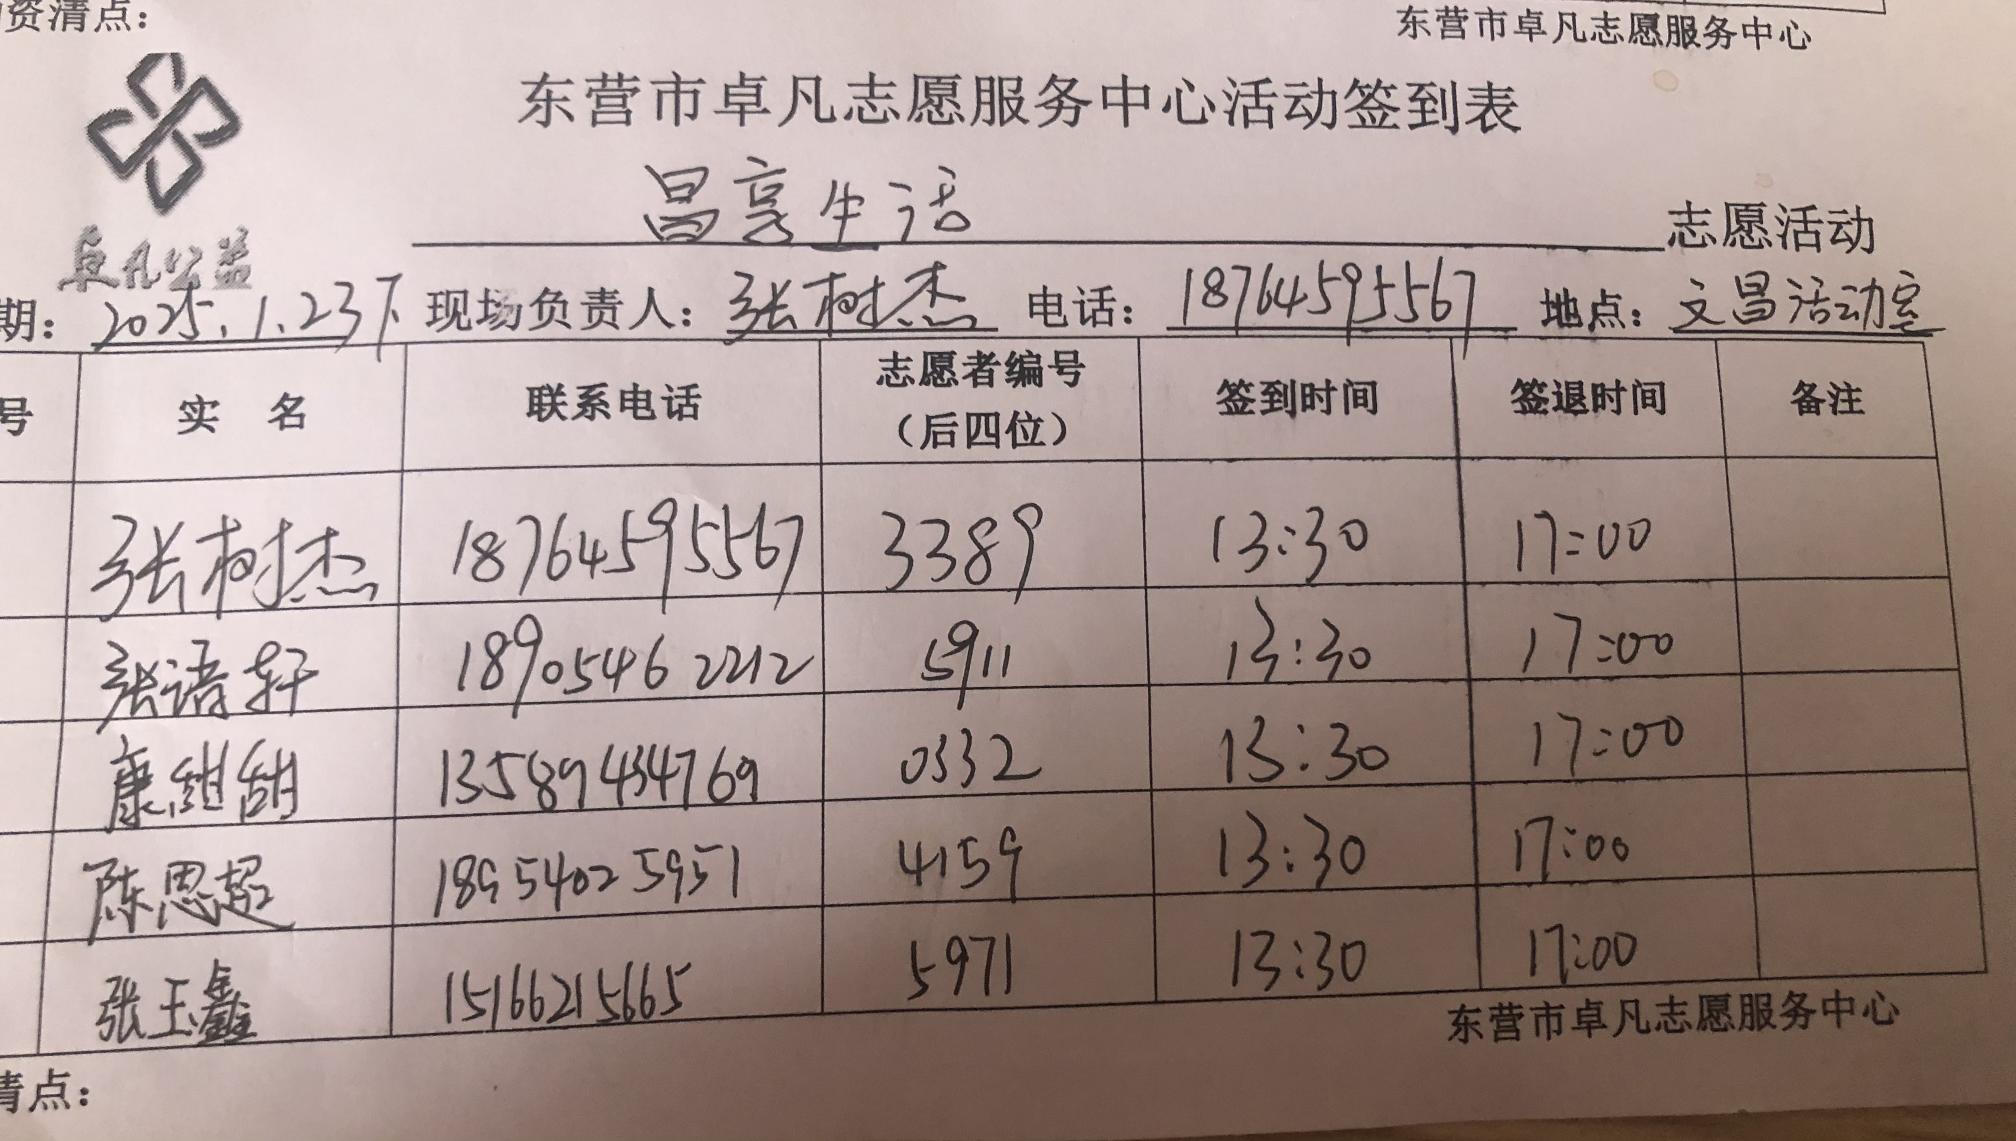 资清点：
东营市卓凡志愿服务中心
东营市卓凡志愿服务中心活动签到表
昌享生活 志愿活动
卓凡公益
期：2025.1.23下 现场负责人：张树杰 电话：18764595567 地点：文昌活动室
号 实 名 联系电话 志愿者编号（后四位） 签到时间 签退时间 备注
张树杰 18764595567 3389 13:30 17:00
张语轩 18905462212 5911 13:30 17:00
康甜甜 13589434769 0332 13:30 17:00
陈思超 18954025951 4159 13:30 17:00
张玉鑫 15166215665 5971 13:30 17:00
东营市卓凡志愿服务中心
清点：